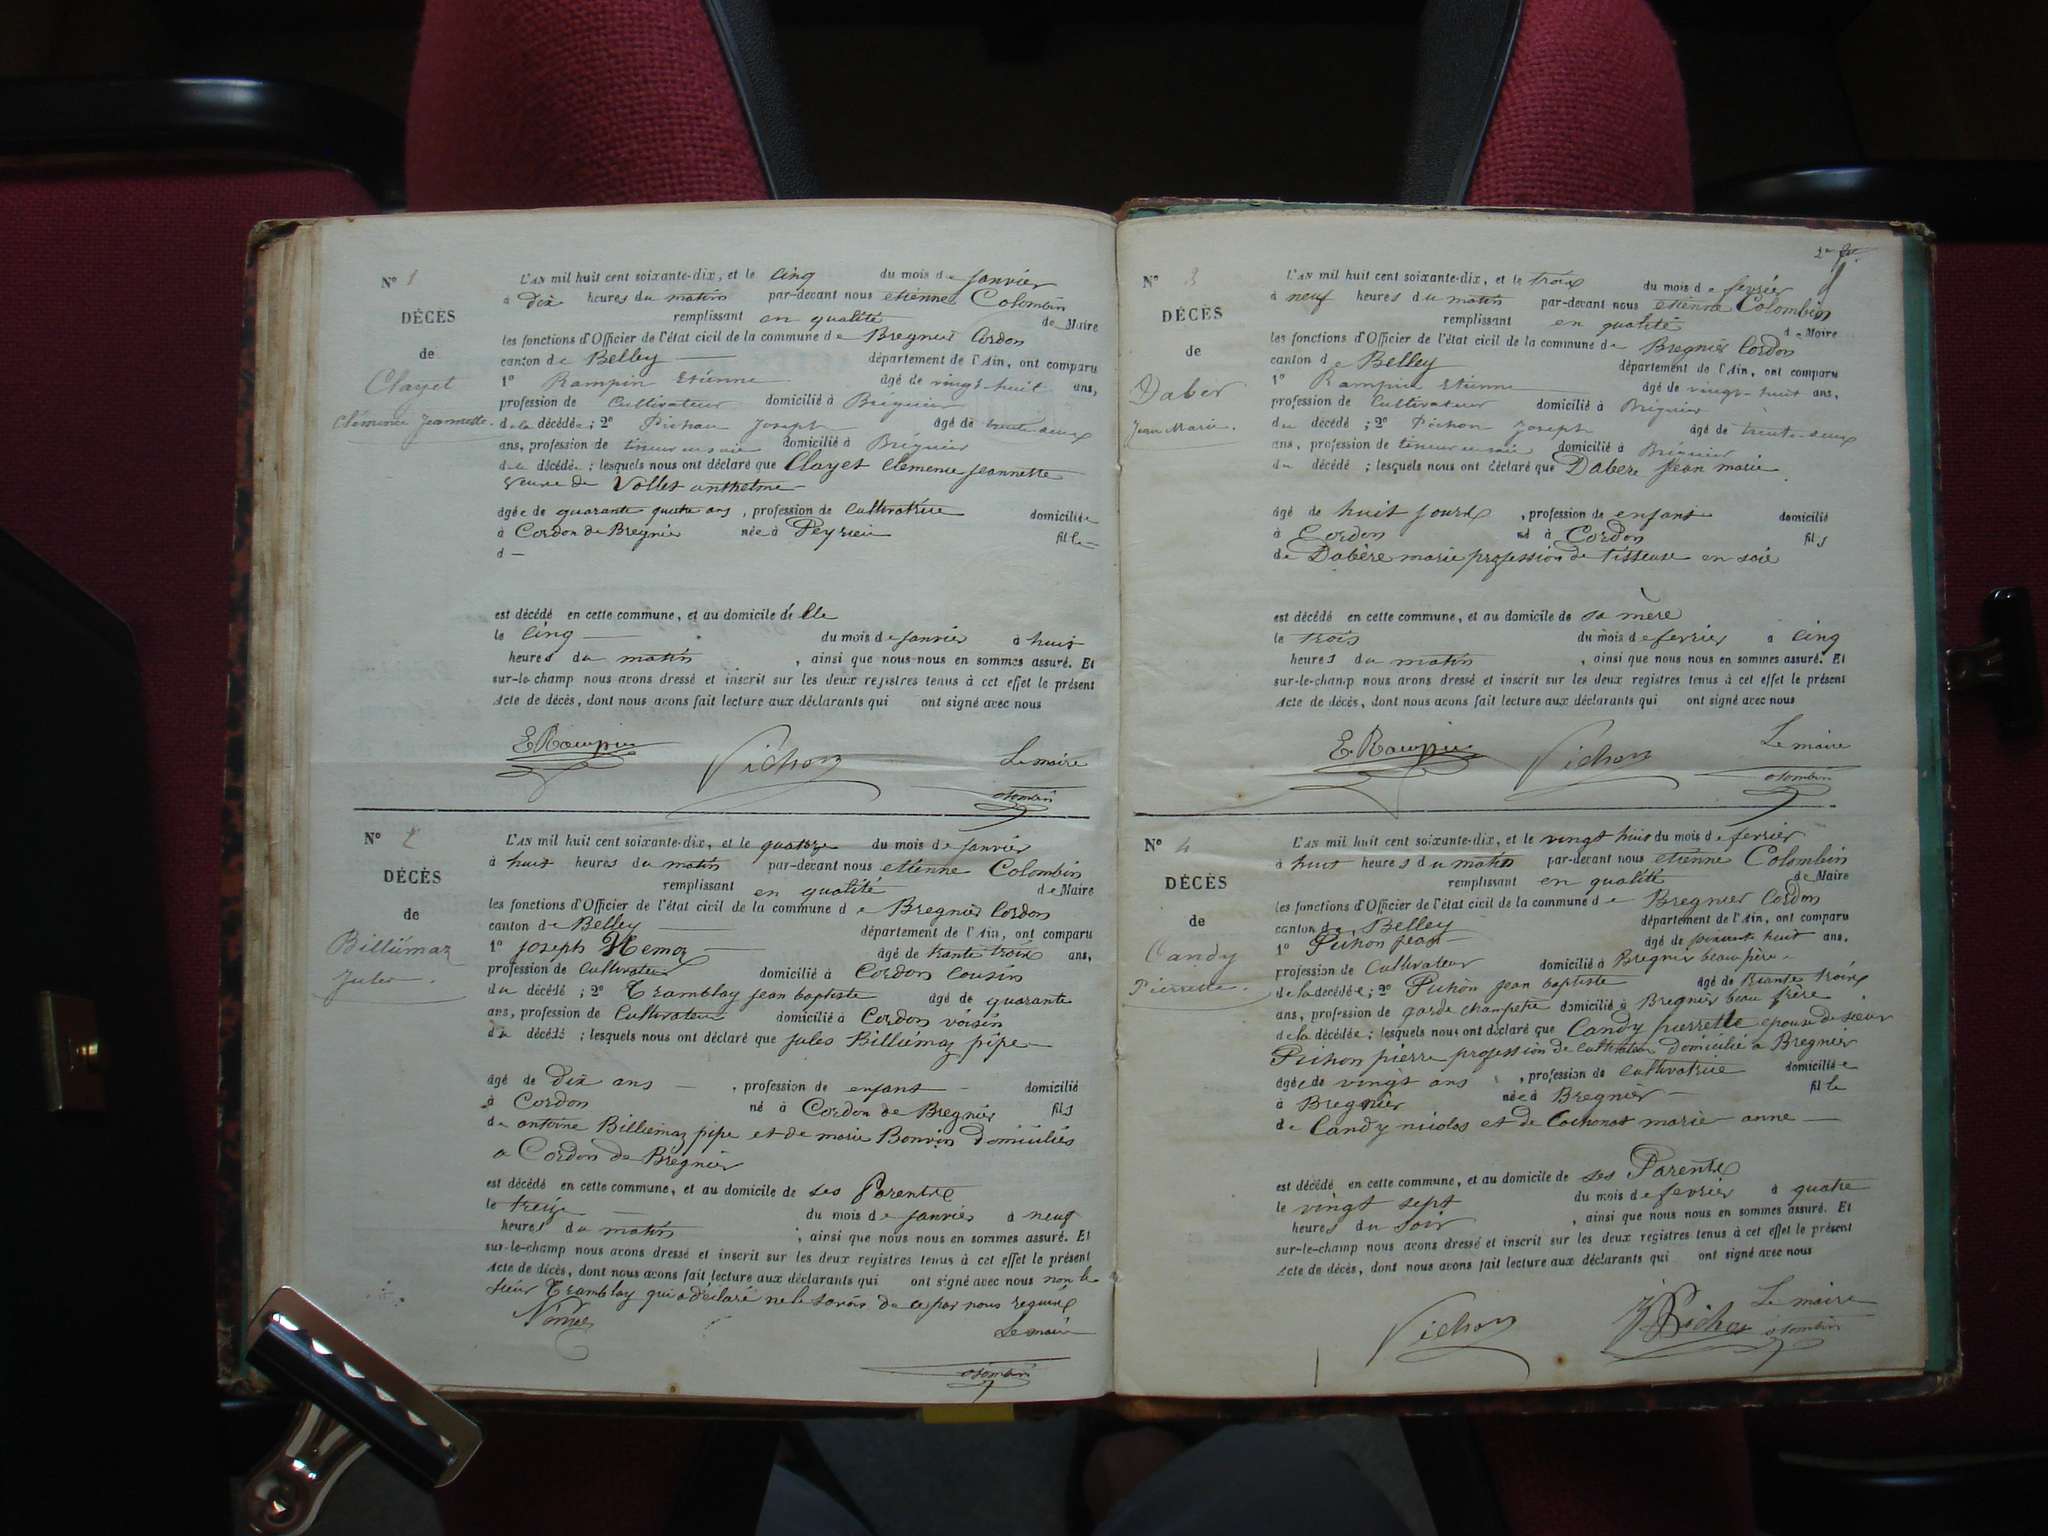 N° 1
DÉCÈS
de
Clayet
Clémence Jeannette.
L'AN mil huit cent soixante-dix, et le cinq du mois de janvier
à dix heures du matin par-devant nous etienne Colombin
remplissant en qualité de Maire
les fonctions d'Officier de l'état civil de la commune de Bregnier Cordon
canton de Belley département de l'Ain, ont comparu
1° Rampin Etienne âgé de vingt-huit ans,
profession de Cultivateur domicilié à Brégnier
de la décédée ; 2° Pichon Joseph âgé de trente-deux
ans, profession de tisseur en soie domicilié à Brégnier
de la décédée ; lesquels nous ont déclaré que Clayet clemence jeannette
veuve de Vollet anthelme
âgée de quarante quatre ans, profession de cultivatrice domiciliée
à Cordon de Bregnier née à Peyrieu fille
d
est décédé en cette commune, et au domicile d'elle
le cinq du mois de janvier à huit
heures du matin, ainsi que nous nous en sommes assuré. Et
sur-le-champ nous avons dressé et inscrit sur les deux registres tenus à cet effet le présent
Acte de décès, dont nous avons fait lecture aux déclarants qui ont signé avec nous
E Rampin Pichon Le maire
Colombin
N° 2
DÉCÈS
de
Billiémaz
Jules.
L'AN mil huit cent soixante-dix, et le quatorze du mois de janvier
à huit heures du matin par-devant nous etienne Colombin
remplissant en qualité de Maire
les fonctions d'Officier de l'état civil de la commune de Bregnier Cordon
canton de Belley département de l'Ain, ont comparu
1° joseph Nemoz âgé de trante trois ans,
profession de cultivateur domicilié à Cordon cousin
du décédé ; 2° Tramblay jean baptiste âgé de quarante
ans, profession de Cultivateur domicilié à Cordon voisin
du décédé ; lesquels nous ont déclaré que jules Billiémaz pipe
âgé de dix ans, profession de enfant domicilié
à Cordon né à Cordon de Bregnier fils
de antoine Billiemaz pipe et de marie Bonvin domiciliés
a Cordon de Bregnier
est décédé en cette commune, et au domicile de ses Parents
le treize du mois de janvier à neuf
heures du matin, ainsi que nous nous en sommes assuré. Et
sur-le-champ nous avons dressé et inscrit sur les deux registres tenus à cet effet le présent
Acte de décès, dont nous avons fait lecture aux déclarants qui ont signé avec nous non le
sieur Tramblay qui a déclaré ne le savoir de ce par nous requis
Le maire
Colombin
N° 3
DÉCÈS
de
Daber
Jean Marie.
L'AN mil huit cent soixante-dix, et le trois du mois de fevrier
à neuf heures du matin par-devant nous etienne Colombin
remplissant en qualité de Maire
les fonctions d'Officier de l'état civil de la commune de Bregnier Cordon
canton de Belley département de l'Ain, ont comparu
1° Rampin Etienne âgé de vingt-huit ans,
profession de Cultivateur domicilié à Brégnier
du décédé ; 2° Pichon Joseph âgé de trente-deux
ans, profession de tisseur en soie domicilié à Brégnier
du décédé ; lesquels nous ont déclaré que Dabere jean marie
âgé de huit jours, profession de enfant domicilié
à Cordon né à Cordon fils
de Dabère marie profession de tisseuse en soie
est décédé en cette commune, et au domicile de sa mère
le trois du mois de fevrier à cinq
heures du matin, ainsi que nous nous en sommes assuré. Et
sur-le-champ nous avons dressé et inscrit sur les deux registres tenus à cet effet le présent
Acte de décès, dont nous avons fait lecture aux déclarants qui ont signé avec nous
E. Rampin Pichon Le maire
Colombin
N° 4
DÉCÈS
de
Candy
Pierrette.
L'AN mil huit cent soixante-dix, et le vingt huit du mois de fevrier
à huit heures du matin par-devant nous etienne Colombin
remplissant en qualité de Maire
les fonctions d'Officier de l'état civil de la commune de Bregnier Cordon
canton de Belley département de l'Ain, ont comparu
1° Pichon jean âgé de soixante huit ans,
profession de Cultivateur domicilié à Bregnier beau père
de la décédée ; 2° Pichon jean baptiste âgé de trante trois
ans, profession de garde champetre domicilié à Bregnier beau frère
de la décédée ; lesquels nous ont déclaré que Candy pierrette epouse de sieur
Pichon pierre profession de cultivateur domicilié a Bregnier
âgée de vingt ans, profession de cultivatrice domiciliée
à Bregnier née à Bregnier fille
de Candy nicolas et de Cochonat marie anne
est décédé en cette commune, et au domicile de ses Parents
le vingt sept du mois de fevrier à quatre
heures du soir, ainsi que nous nous en sommes assuré. Et
sur-le-champ nous avons dressé et inscrit sur les deux registres tenus à cet effet le présent
Acte de décès, dont nous avons fait lecture aux déclarants qui ont signé avec nous
Pichon Pichon Le maire
Colombin